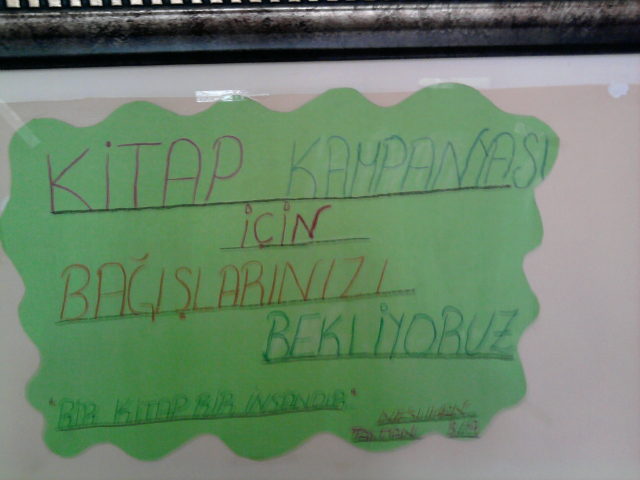 KİTAP KAMPANYASI
İÇİN
BAĞIŞLARINIZI
BEKLİYORUZ
"BİR KİTAP BİR İNSANDIR"
NESLİHAN